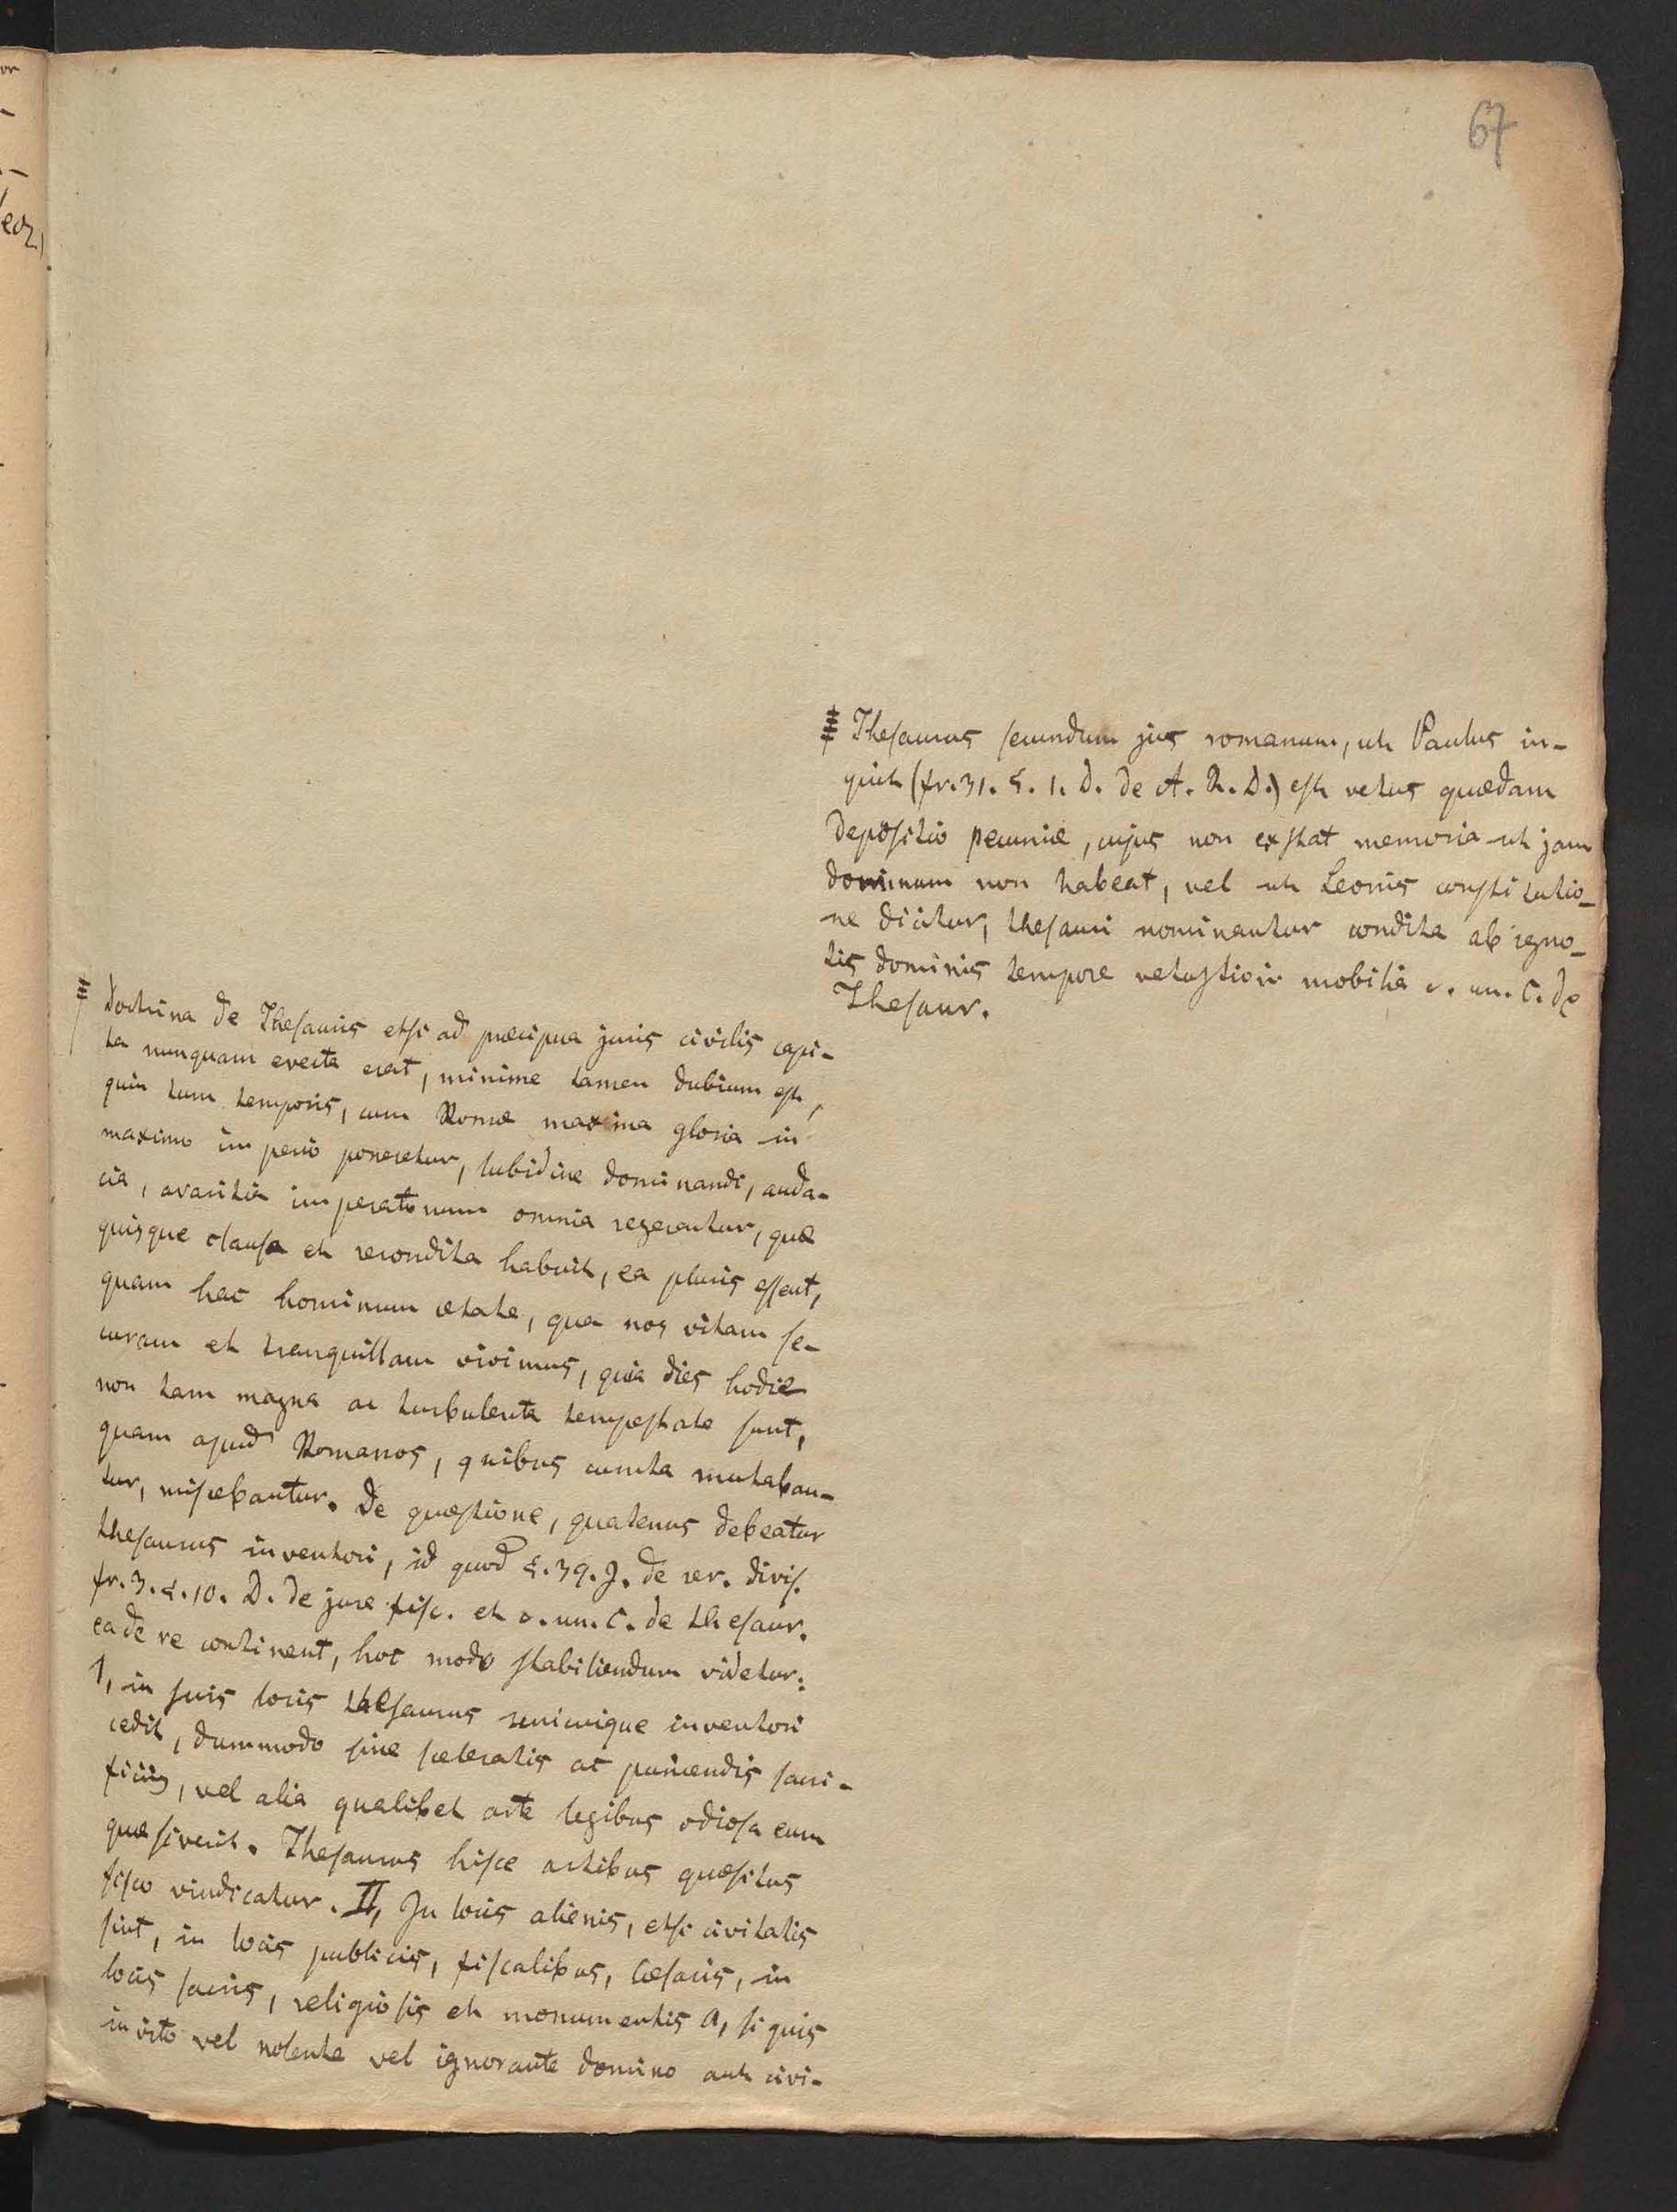 67
Thesaurus secundum jus romanum, ut Paulus in-
quit (fr. 31. §. 1. D. de A. R. D.) est vetus quædam
depositio pecuniæ, cujus non exstat memoria ut jam
dominum non habeat, vel ut Leonis constitutio-
ne dicitur, thesauri nominantur condita ab igno-
tis dominis tempore vetustiori mobilia c. un. C. de
Thesaur.
Doctrina de Thesauris etsi ad præcipua juris civilis capi-
ta nunquam evecta erat, minime tamen dubium est,
quin tum temporis, cum Romæ maxima gloria in
maximo imperio poneretur, lubidine dominandi, auda-
cia, avaritia imperatorum omnia regerentur, quæ
quisque clausa et recondita habuit, ea pluris essent,
quam hac hominum ætate, qua nos vitam se-
curam et tranquillam vivimus, quia dies hodie
non tam magna ac turbulenta tempestate sunt,
quam apud Romanos, quibus cuncta mutaban-
tur, miscebantur. De quæstione, quatenus debeatur
thesaurus inventori, id quod §. 39. J. de rer. divis.
fr. 3. §. 10. D. de jure fisc. et c. un. C. de thesaur.
ea de re continent, hoc modo stabiliendum videtur:
I, in suis locis thesaurus unicuique inventori
cedit, dummodo sine sceleratis ac puniendis sacri-
ficiis, vel alia qualibet arte legibus odiosa eum
quæsiverit. Thesaurus hisce artibus quæsitus
fisco vindicatur. II, In locis alienis, etsi civitatis
sint, in locis publicis, fiscalibus, Cæsaris, in
locis sacris, religiosis et monumentis a, si quis
invito vel nolente vel ignorante domino aut civi-